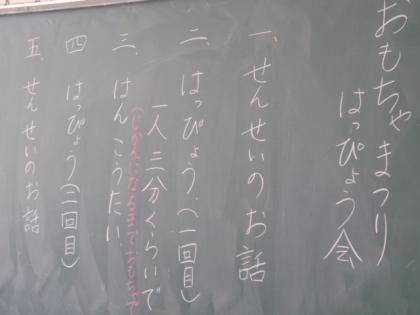 おもちゃまつり
はっぴょう会
一、せんせいのお話
二、はっぴょう(一回目)
一人三分くらいで
(じかんになるまでおもちゃで
三、はんこうたい
四 はっぴょう(二回目)
五、せんせいのお話